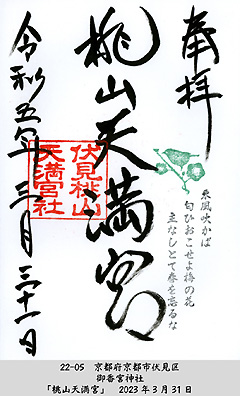 奉拝
桃山天満宮
令和五年三月三十一日
伏見桃山
天満宮社
東風吹かば
匂ひおこせよ梅の花
主なしとて春を忘るな
22-05 京都府京都市伏見区
御香宮神社
「桃山天満宮」 2023年3月31日